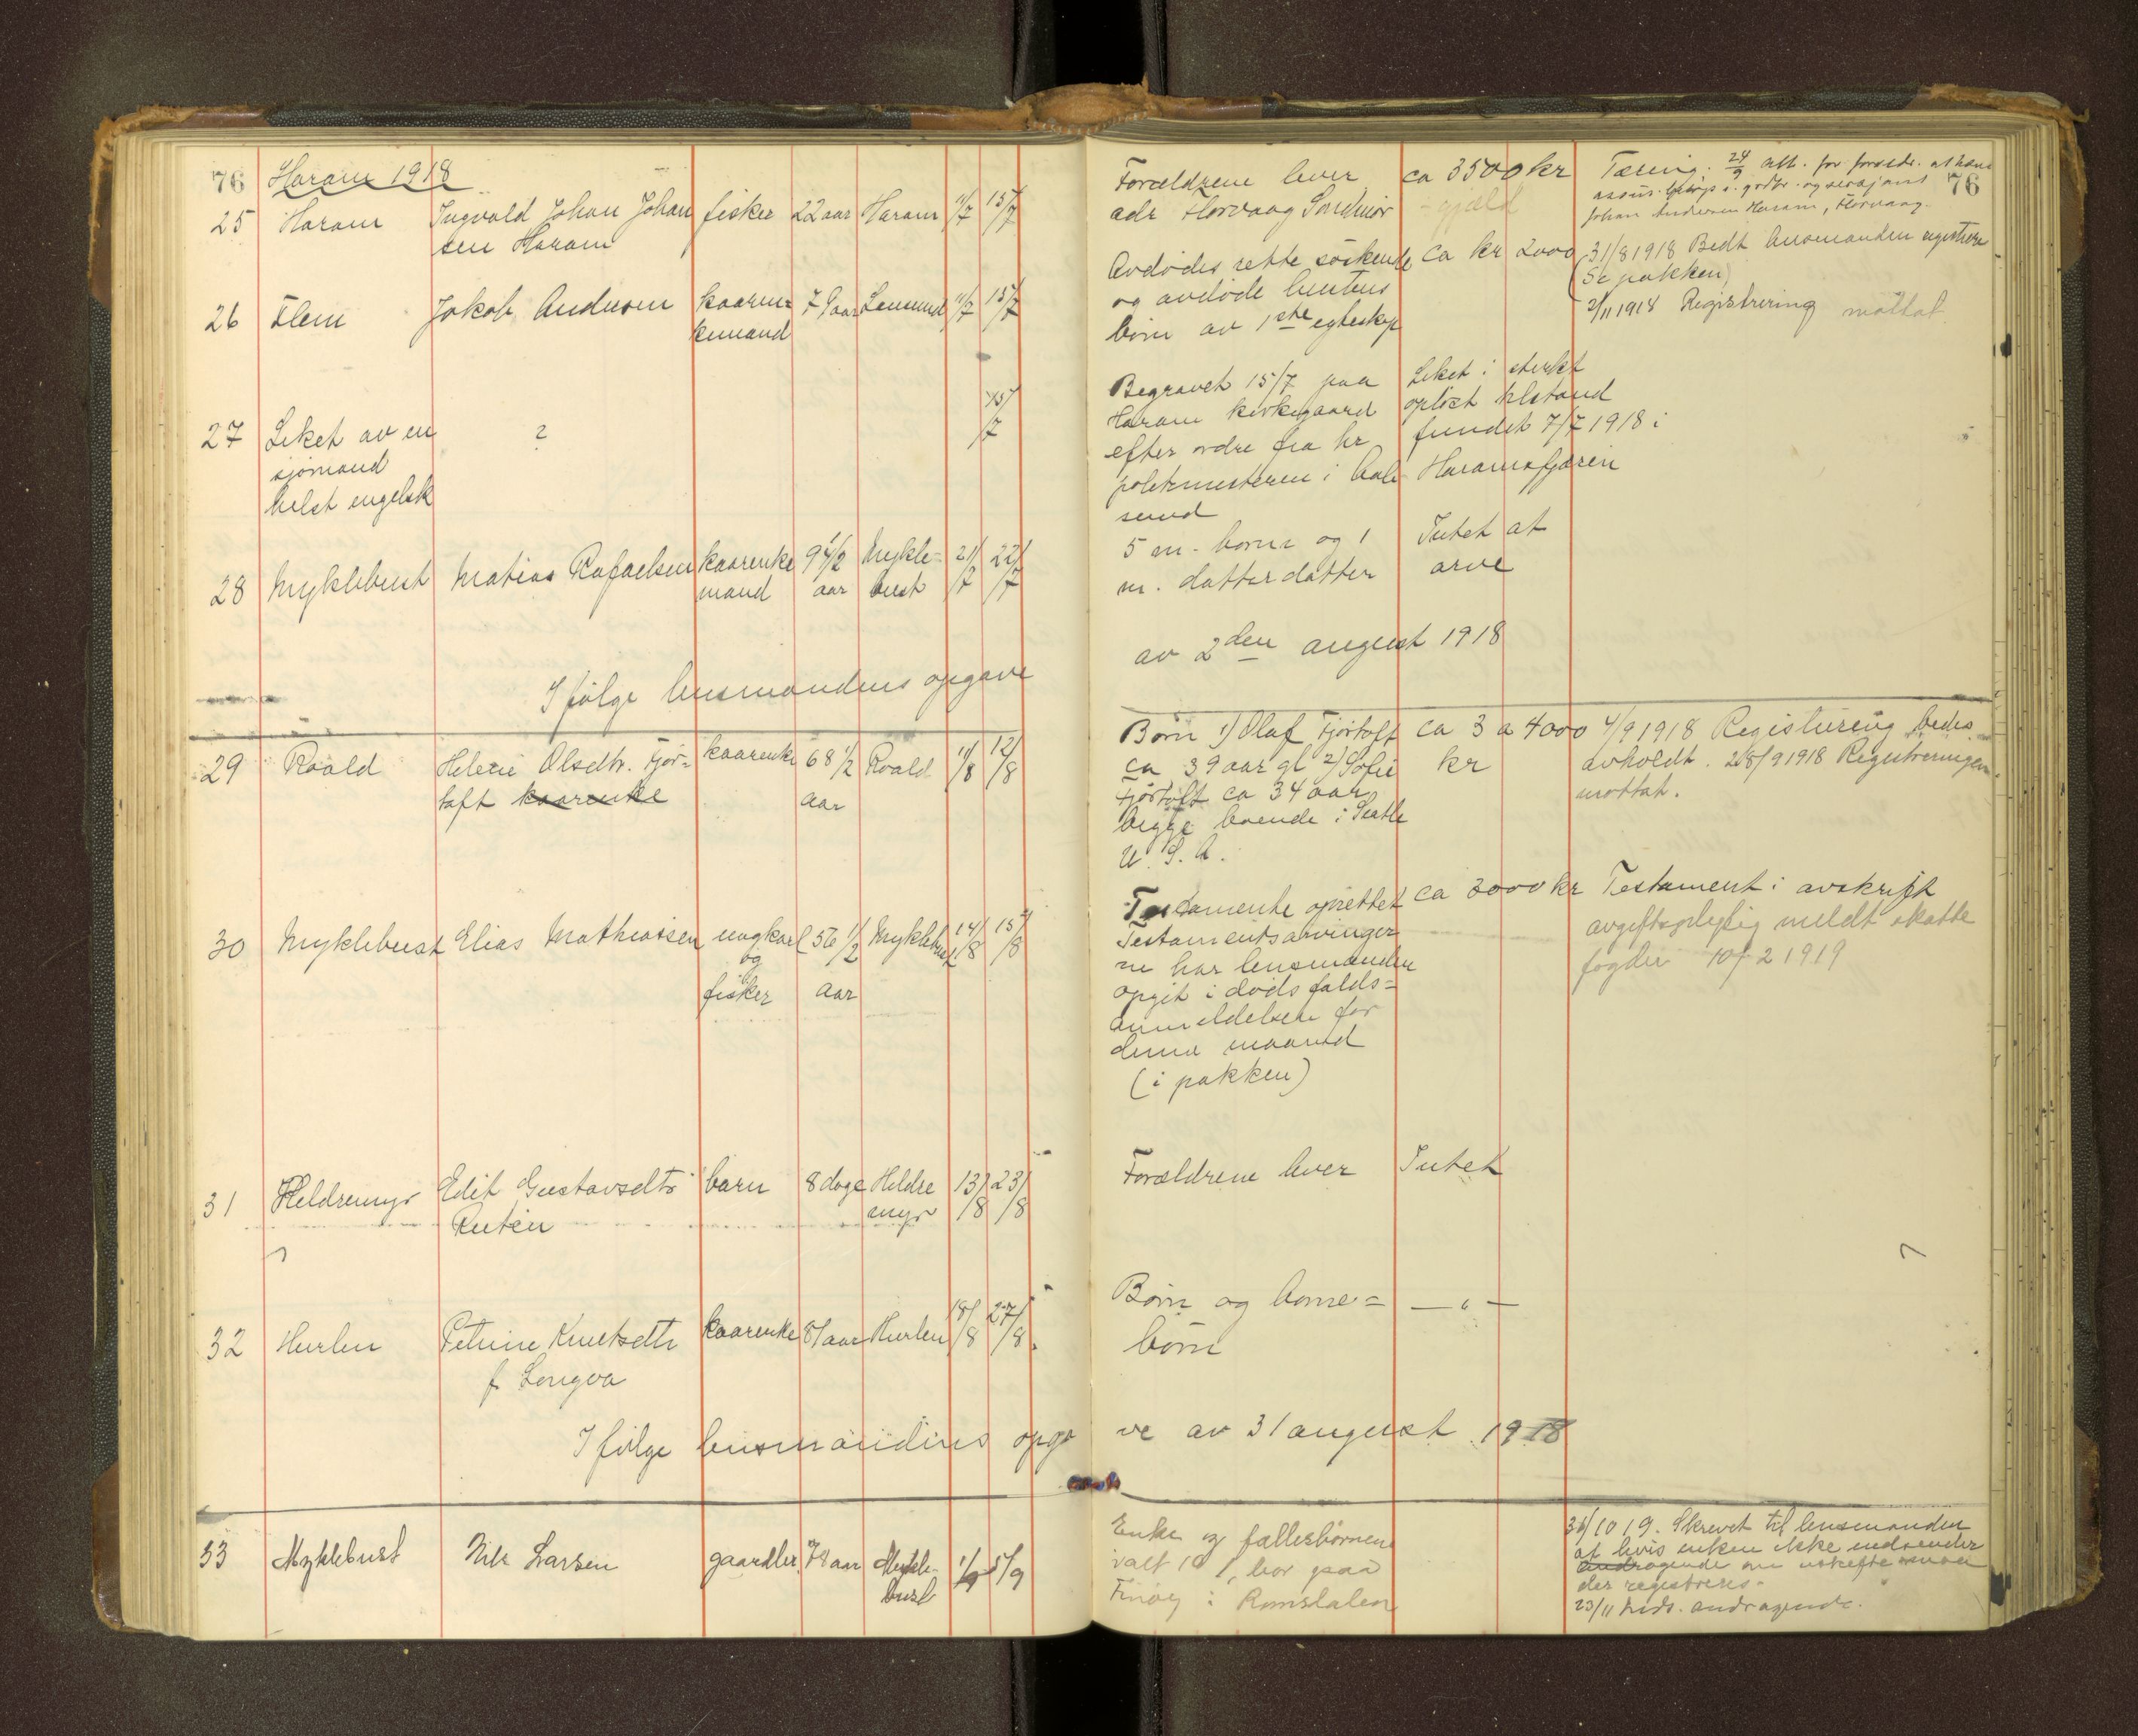 76 Haram 1918
25 Haram Ingvald Johan Johan fisker 22 aar Haram 11/7 15/7
sen Haram
26 Flem Jakob Andersen kaaren= 79 aar Lensund 11/7 15/7
kemand
27 Liket av en ? 15/7
sjømand
helst engelsk
28 Myklebust Matias Rafaelsen kaarenke 94 1/2 Mykle- 21/7 22/7
mand aar bust
Ifølge lensmandens opgave
29 Roald Helene Olsdtr. Fjør= kaarenke 68 1/2 Roald 1/8 12/8
toft kaarenke aar
30 Myklebust Elias Mathiassen ungkarl 56 1/2 Myklebust 14/8 15/8
og
fisker aar
31 Heldremyr Edit Gustavsdtr barn 8 dage Heldre 13/8 23/8
Rutin myr
32 Hurlen Petrine Knutsdtr kaarenke 81 aar Hurlen 18/8 27/8
f. Longva
Ifølge lensmandens opga
33 Myklebust Nils Larsen gaardbr. 78 aar Mykle- 1/9 5/9
bust
76
Forældrene lever ca 3500 kr Tæring. 24/9 att. for forældr. at hæve
adr Horvaag Søndmør - gjæld
Johan Andersen Haram, Horvaag.
Avdødes rette søskende ca kr 2000 31/8 1918 Bedt lensmanden registrere
og avdøde hustrus (Se pakken)
børn av 1ste egteskap 2/11 1918 Registrering mottat
Begravet 15/7 paa Liket i sterkt
Haram kirkegaard opløst tilstand
efter ordre fra hr fundet 7/7 1918 i
politimesteren i Aale Haramsfjæren
sund
5 m. børn og 1 Intet at
m. datterdatter arve
av 2den august 1918
Børn 1) Olaf Fjørtoft ca 3 a 4000 4/9 1918 Registrering bedes
ca 39 aar gl 2) Sofie kr avholdt. 28/9 1918 Registreringen
Fjørtoft ca 34 aar mottat.
begge boende i Seatle
U. S. A.
Testamente oprettet ca 3000 kr Testament i avskrift
Testamentsarvinger avgiftspligtig meldt skatte
ne har lensmanden fogden 10/2 1919
opgit i dødsfalds=
anmeldelsen for
denne maaned
(i pakken)
Forældrene lever Intet
Børn og borne= — " —
børn
ve av 31 august 1918
Enke og fællesbørnene 31/10 19. Skrevet til lensmanden
valt 10 1, bor paa at hvis enken ikke indsender
Finøy i Romsdalen andragende om uskifte maa
der registreres.
23/11 Inds. andragende.